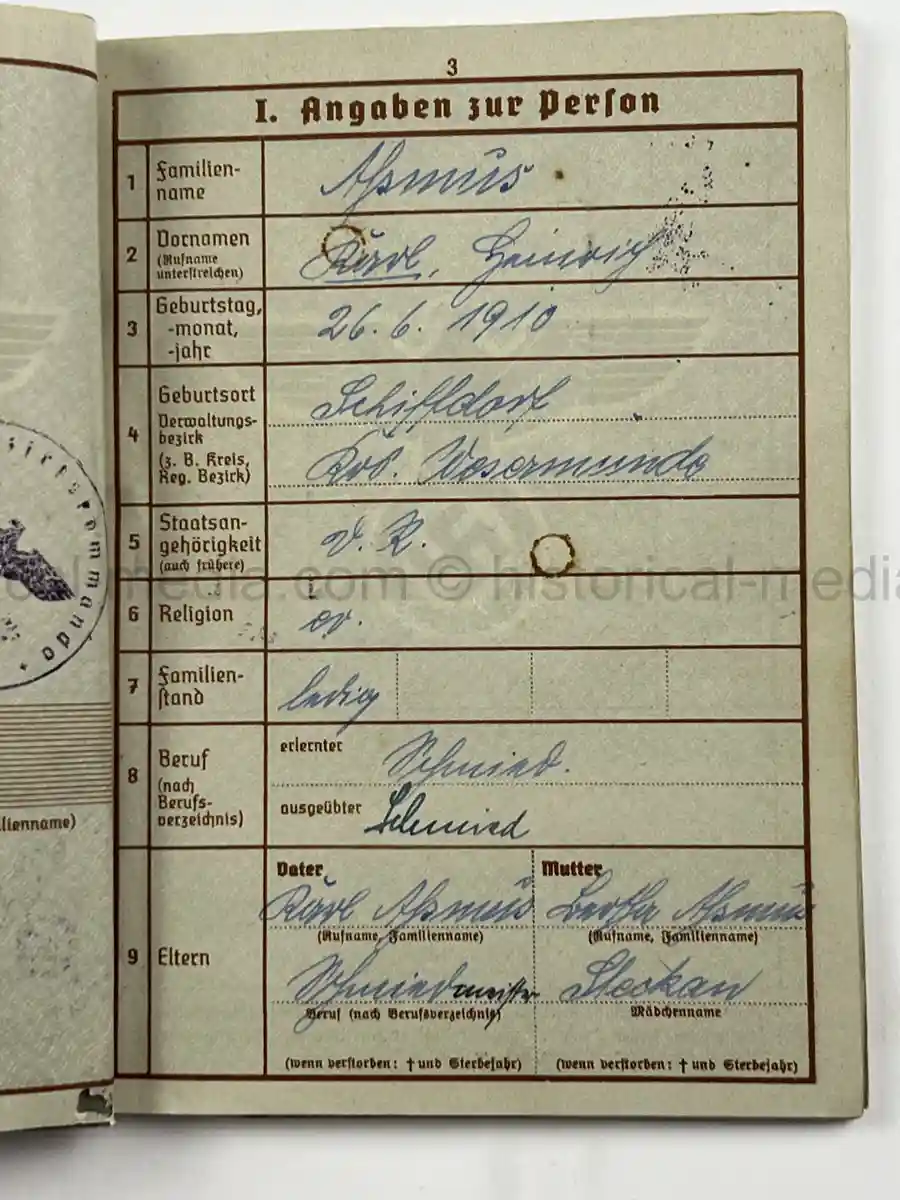 3
I. Angaben zur Person
1 Familien-
name
Aßmus
2 Vornamen
(Rufname
unterstreichen)
Karl, Heinrich
3 Geburtstag,
-monat,
-jahr
26. 6. 1910
4 Geburtsort
Verwaltungs-
bezirk
(z. B. Kreis,
Reg. Bezirk)
Schiffdorf
Krs. Wesermünde
5 Staatsan-
gehörigkeit
(auch frühere)
D. R.
6 Religion
ev.
7 Familien-
stand
ledig
8 Beruf
(nach
Berufs-
verzeichnis)
erlernter Schmied.
ausgeübter Schmied
9 Eltern
Vater
Karl Aßmus
(Rufname, Familienname)
Schmiedmeister
Beruf (nach Berufsverzeichnis)
(wenn verstorben: † und Sterbejahr)
Mutter
Bertha Aßmus
(Rufname, Familienname)
Steckan
Mädchenname
(wenn verstorben: † und Sterbejahr)
ilienname)
media.com © historical-media